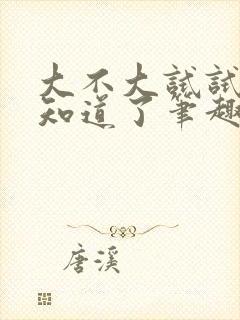 大不大试试
知道了笔趣
唐溪